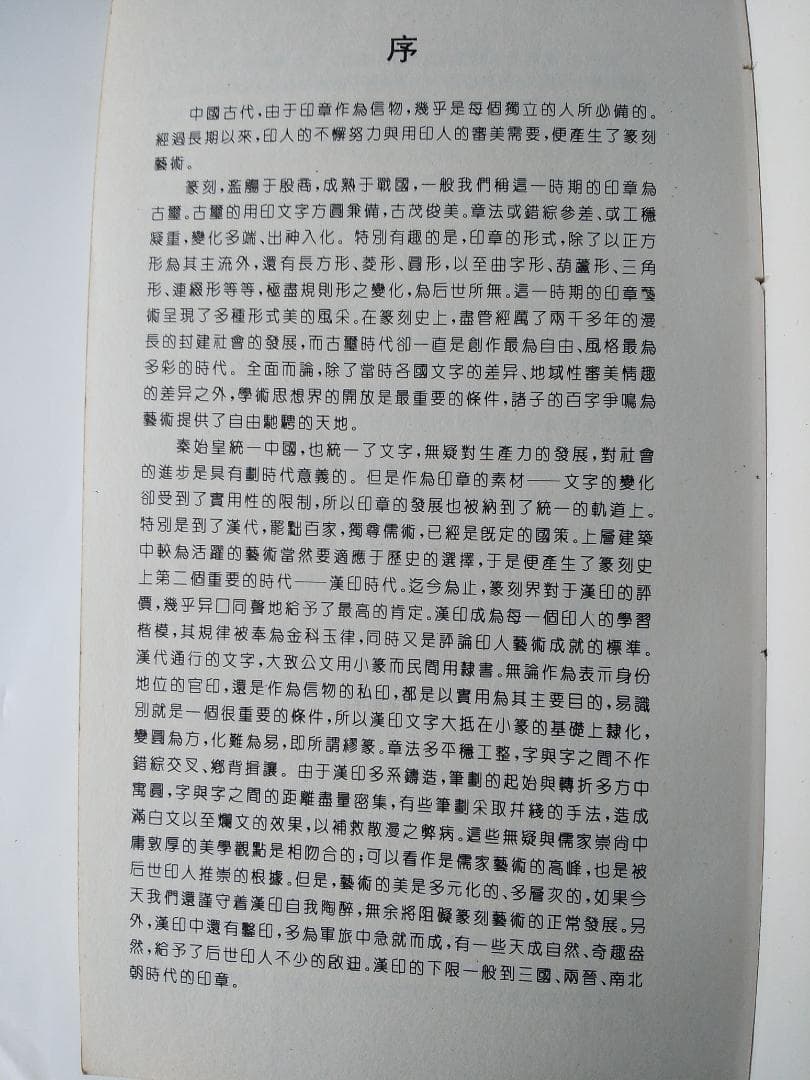 序
中國古代,由于印章作為信物,幾乎是每個獨立的人所必備的。
經過長期以來,印人的不懈努力與用印人的審美需要,便產生了篆刻
藝術。
篆刻,濫觴于殷商,成熟于戰國,一般我們稱這一時期的印章為
古璽。古璽的用印文字方圓兼備,古茂俊美。章法或錯綜參差、或工穩
凝重,變化多端、出神入化。特別有趣的是,印章的形式,除了以正方
形為其主流外,還有長方形、菱形、圓形,以至曲字形、葫蘆形、三角
形、連綴形等等,極盡規則形之變化,為后世所無。這一時期的印章藝
術呈現了多種形式美的風采。在篆刻史上,盡管經厲了兩千多年的漫
長的封建社會的發展,而古璽時代卻一直是創作最為自由、風格最為
多彩的時代。全面而論,除了當時各國文字的差异、地域性審美情趣
的差异之外,學術思想界的開放是最重要的條件,諸子的百字爭鳴為
藝術提供了自由馳騁的天地。
秦始皇統一中國,也統一了文字,無疑對生產力的發展,對社會
的進步是具有劃時代意義的。但是作為印章的素材——文字的變化
卻受到了實用性的限制,所以印章的發展也被納到了統一的軌道上。
特別是到了漢代,罷黜百家,獨尊儒術,已經是既定的國策。上層建築
中較為活躍的藝術當然要適應于歷史的選擇,于是便產生了篆刻史
上第二個重要的時代——漢印時代。迄今為止,篆刻界對于漢印的評
價,幾乎异口同聲地給予了最高的肯定。漢印成為每一個印人的學習
楷模,其規律被奉為金科玉律,同時又是評論印人藝術成就的標準。
漢代通行的文字,大致公文用小篆而民間用隸書。無論作為表示身份
地位的官印,還是作為信物的私印,都是以實用為其主要目的,易識
別就是一個很重要的條件,所以漢印文字大抵在小篆的基礎上隸化,
變圓為方,化難為易,即所謂繆篆。章法多平穩工整,字與字之間不作
錯綜交叉、鄉背揖讓。由于漢印多系鑄造,筆劃的起始與轉折多方中
寓圓,字與字之間的距離盡量密集,有些筆劃采取幷綫的手法,造成
滿白文以至爛文的效果,以補救散漫之弊病。這些無疑與儒家崇尚中
庸敦厚的美學觀點是相吻合的;可以看作是儒家藝術的高峰,也是被
后世印人推崇的根據。但是,藝術的美是多元化的、多層次的,如果今
天我們還謹守着漢印自我陶醉,無余將阻礙篆刻藝術的正常發展。另
外,漢印中還有鑿印,多為軍旅中急就而成,有一些天成自然、奇趣盎
然,給予了后世印人不少的啟迪。漢印的下限一般到三國、兩晉、南北
朝時代的印章。